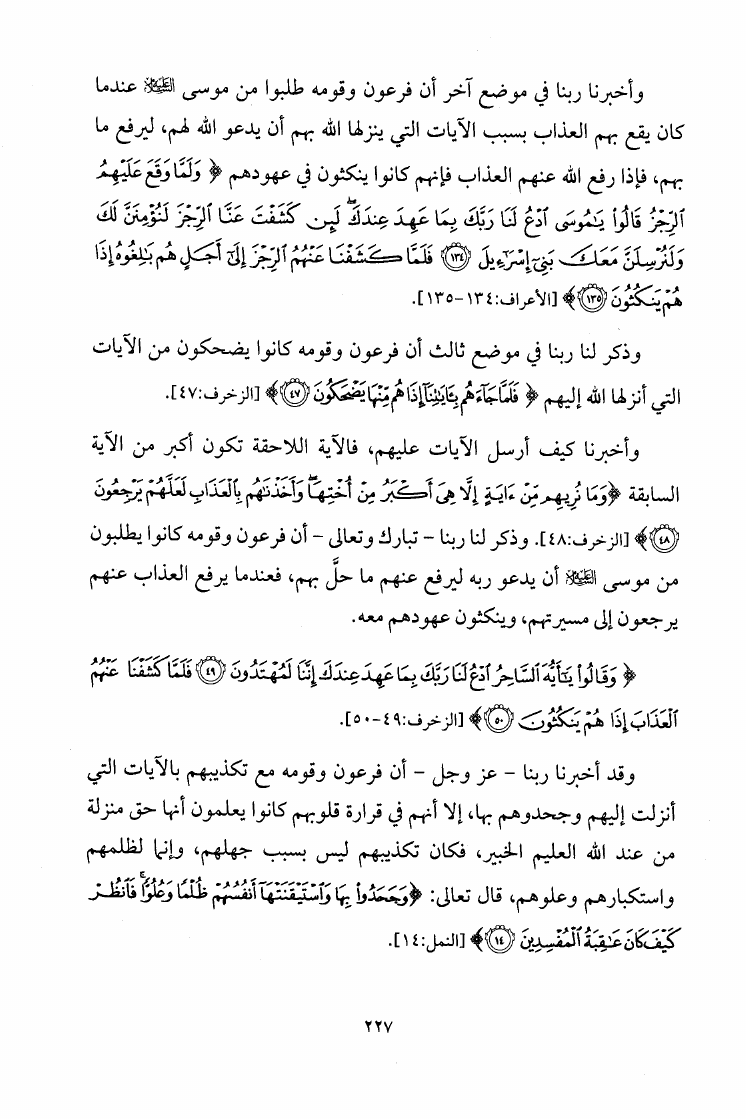 وأخبرنا ربنا في موضع آخر أن فرعون وقومه طلبوا من موسى عليه السلام عندما
كان يقع بهم العذاب بسبب الآيات التي ينزلها الله بهم أن يدعو الله لهم، ليرفع ما
بهم، فإذا رفع الله عنهم العذاب فإنهم كانوا ينكثون في عهودهم ﴿ وَلَمَّا وَقَعَ عَلَيْهِمُ
ٱلرِّجْزُ قَالُوا۟ يَٰمُوسَى ٱدْعُ لَنَا رَبَّكَ بِمَا عَهِدَ عِندَكَ ۖ لَئِن كَشَفْتَ عَنَّا ٱلرِّجْزَ لَنُؤْمِنَنَّ لَكَ
وَلَنُرْسِلَنَّ مَعَكَ بَنِىٓ إِسْرَٰٓءِيلَ ١٣٤ فَلَمَّا كَشَفْنَا عَنْهُمُ ٱلرِّجْزَ إِلَىٰٓ أَجَلٍ هُم بَٰلِغُوهُ إِذَا
هُمْ يَنكُثُونَ ١٣٥ ﴾ [الأعراف:١٣٤-١٣٥].
وذكر لنا ربنا في موضع ثالث أن فرعون وقومه كانوا يضحكون من الآيات
التي أنزلها الله إليهم ﴿ فَلَمَّا جَآءَهُم بِـَٔايَٰتِنَآ إِذَا هُم مِّنْهَا يَضْحَكُونَ ٤٧ ﴾ [الزخرف:٤٧].
وأخبرنا كيف أرسل الآيات عليهم، فالآية اللاحقة تكون أكبر من الآية
السابقة ﴿وَمَا نُرِيهِم مِّنْ ءَايَةٍ إِلَّا هِىَ أَكْبَرُ مِنْ أُخْتِهَا ۖ وَأَخَذْنَٰهُم بِٱلْعَذَابِ لَعَلَّهُمْ يَرْجِعُونَ
٤٨ ﴾ [الزخرف:٤٨]. وذكر لنا ربنا – تبارك وتعالى – أن فرعون وقومه كانوا يطلبون
من موسى عليه السلام أن يدعو ربه ليرفع عنهم ما حلَّ بهم، فعندما يرفع العذاب عنهم
يرجعون إلى مسيرتهم، وينكثون عهودهم معه.
﴿ وَقَالُوا۟ يَٰٓأَيُّهَ ٱلسَّاحِرُ ٱدْعُ لَنَا رَبَّكَ بِمَا عَهِدَ عِندَكَ إِنَّنَا لَمُهْتَدُونَ ٤٩ فَلَمَّا كَشَفْنَا عَنْهُمُ
ٱلْعَذَابَ إِذَا هُمْ يَنكُثُونَ ٥٠ ﴾ [الزخرف:٤٩-٥٠].
وقد أخبرنا ربنا – عز وجل – أن فرعون وقومه مع تكذيبهم بالآيات التي
أنزلت إليهم وجحدوهم بها، إلا أنهم في قرارة قلوبهم كانوا يعلمون أنها حق منزلة
من عند الله العليم الخبير، فكان تكذيبهم ليس بسبب جهلهم، وإنما لظلمهم
واستكبارهم وعلوهم، قال تعالى: ﴿وَجَحَدُوا۟ بِهَا وَٱسْتَيْقَنَتْهَآ أَنفُسُهُمْ ظُلْمًا وَعُلُوًّا ۚ فَٱنظُرْ
كَيْفَ كَانَ عَٰقِبَةُ ٱلْمُفْسِدِينَ ١٤ ﴾ [النمل:١٤].
٢٢٧